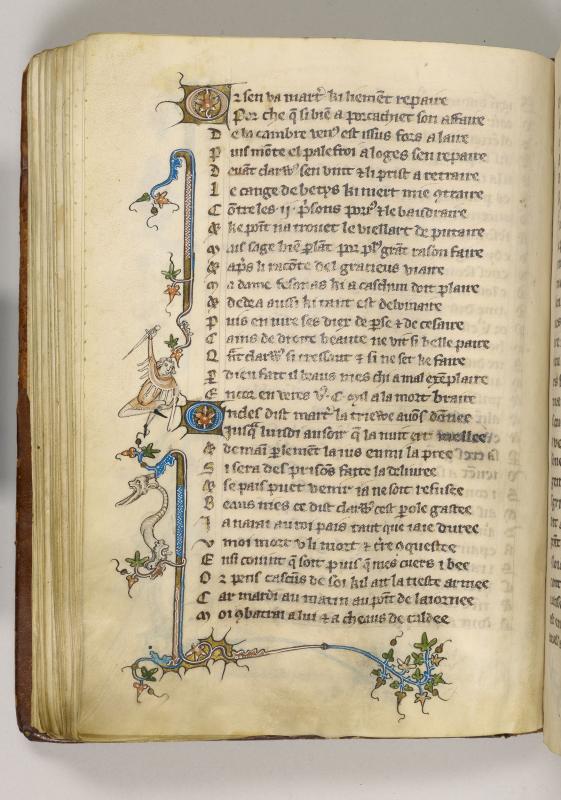 Or sen va marc̄ ki liement repaire
Por che q̄ si biē a porcachiet son affaire
De la cambre ven⁹ est issus fors a laire
Puis mōte el palefroi a loges sen repaire
Deuāt clarꝰ sen vint ⁊ li prist a retraire
Le cange de betys ki niert mie ꝯtraire
Cōtre les .ij. p̄sons por⁹ ⁊ le baudraire
⁊ ke poīt na trouet le viellart de putaire
Mais sage biē plāt por pl⁹ grāt raison faire
⁊ ap̄s li racōte del gracieus viaire
Ma dame fesonas ki a cascun doit plaire
⁊ dedea aussi ki tant est debonaire
Puis en iure ses diex de pse ⁊ de cesaire
Cains de droite beaute ne vit si belle paire
Qīt clarꝰ si tressaut ⁊ si ne set ke faire
P dieu fait il biaus nies chi a mal exēplaire
Encor en veres v.C. oyl a la mort braire
Oncles dist marc̄ la triewe auōs dōnee
Jusq̄ lundi au soir q̄ la nuit ert mellee
⁊ demaī plement la ius enmi la pree
Si sera des prisōs faite la deliuree
⁊ se pais puet venir ia ne soit refusee
Beaus nies ce dist clarꝰ cest pole gastee
Ja narai au roi pais tant que iaie duree
V moi mort v li mort ⁊ tre ꝯquestee
Ensi couint q̄ soit puis q̄ mes cuers i bee
Or pens cascūs de soi kil ait la tieste armee
Car mardi au matin au poīt de laiornee
Moi ꝯbatrai a lui ⁊ a cheaus de caldee